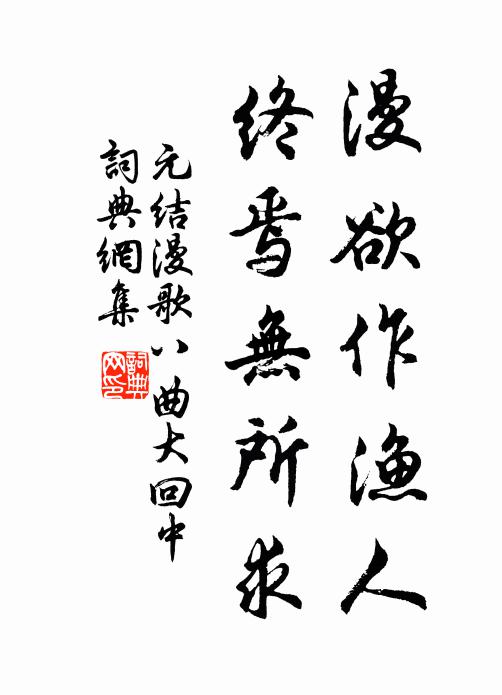 漫欲作漁人
終焉無所求
元結漫歌八曲大回中
詞典網集
詞典網印